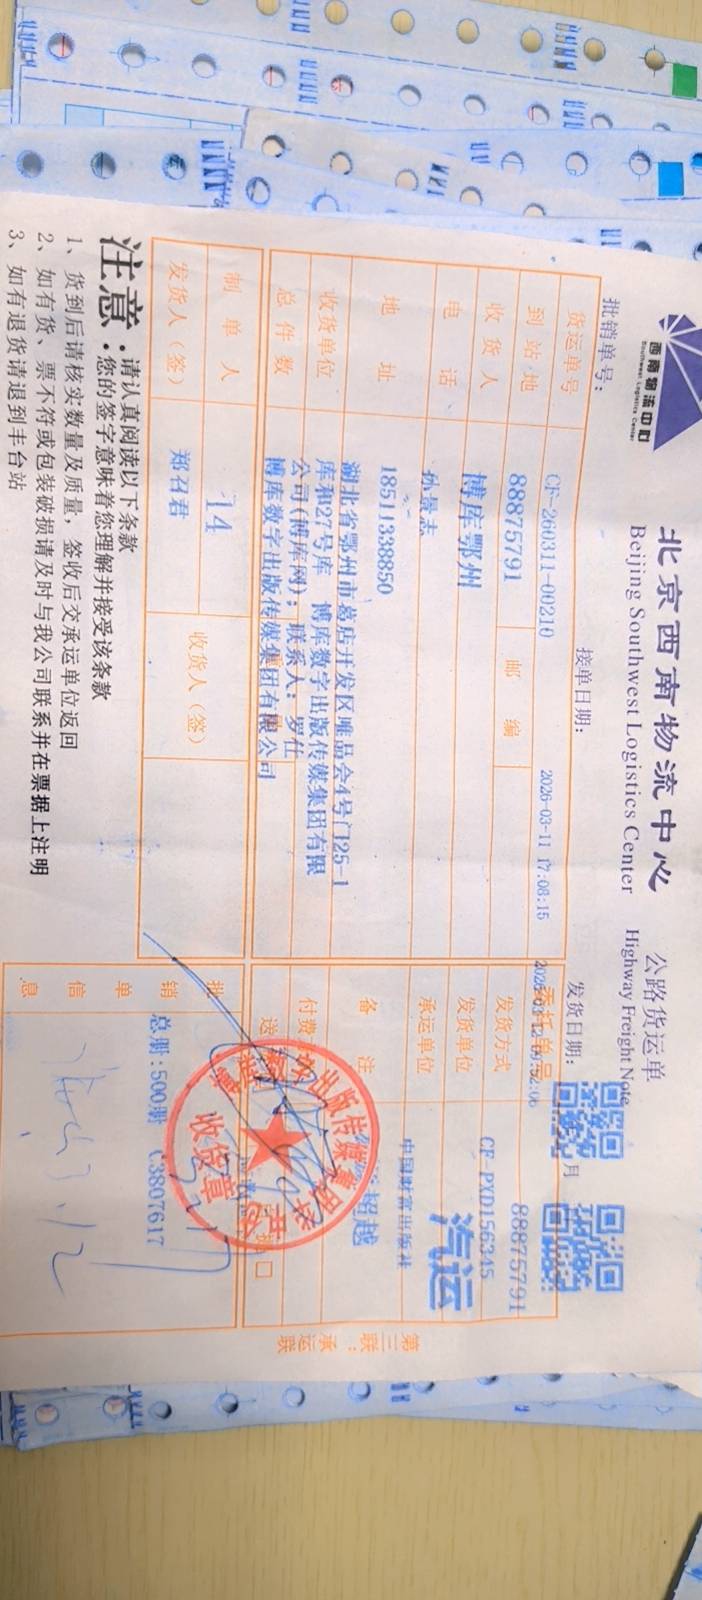 西南物流中心
Southwest Logistics Center
北京西南物流中心 公路货运单
Beijing Southwest Logistics Center Highway Freight Note
批销单号： 接单日期： 发货日期： 月
货运单号 CF-260311-00210 2026-03-11 17:08:15
委托单号 88875791
到站地 88875791 邮编
发货方式 CF-PXD156345
收货人 博库鄂州
发货单位 汽运
电话 孙景志
承运单位 中国财富出版社
地址 18511338850
备注 超越
收货单位 湖北省鄂州市葛店开发区唯品会4号门25-1
库和27号库 博库数字出版传媒集团有限
公司(博库网)；联系人：罗仕
付费
总件数 博库数字出版传媒集团有限公司
送
制单人 14 收货人（签）
发货人（签） 郑召君
批销单信息 总册:500册 C3807617
出版传媒集团
收货章
3.12
注意：请认真阅读以下条款
您的签字意味着您理解并接受该条款
1、货到后请核实数量及质量，签收后交承运单位返回
2、如有货、票不符或包装破损请及时与我公司联系并在票据上注明
3、如有退货请退到丰台站
第三联：承运联